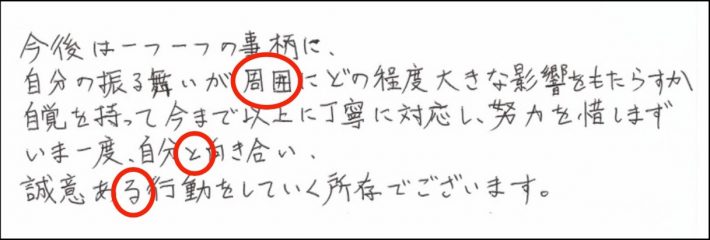 今後は一つ一つの事柄に、
自分の振る舞いが周囲にどの程度大きな影響をもたらすか
自覚を持って今まで以上に丁寧に対応し、努力を惜しまず
いま一度、自分と向き合い、
誠意ある行動をしていく所存でございます。